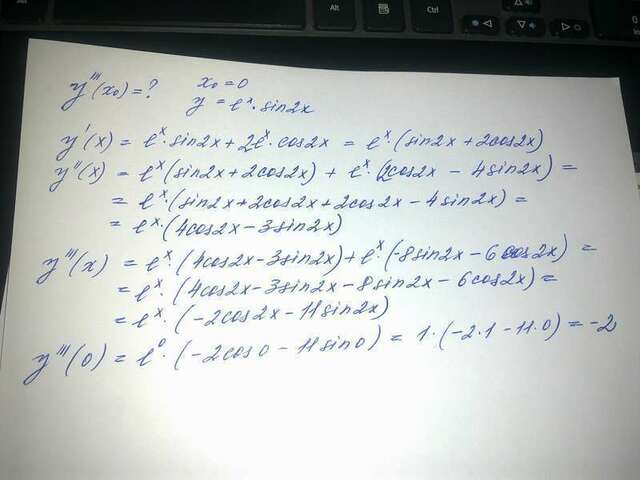 Alt
Ctrl
y'''(x₀) = ? x₀ = 0
y = eˣ · sin2x
y'(x) = eˣ · sin2x + 2eˣ · cos2x = eˣ · (sin2x + 2cos2x)
y''(x) = eˣ (sin2x + 2cos2x) + eˣ · (2cos2x − 4sin2x) =
= eˣ · (sin2x + 2cos2x + 2cos2x − 4sin2x) =
= eˣ · (4cos2x − 3sin2x)
y'''(x) = eˣ · (4cos2x − 3sin2x) + eˣ · (−8sin2x − 6cos2x) =
= eˣ · (4cos2x − 3sin2x − 8sin2x − 6cos2x) =
= eˣ · (−2cos2x − 11sin2x)
y'''(0) = e⁰ · (−2cos0 − 11sin0) = 1 · (−2 · 1 − 11 · 0) = −2